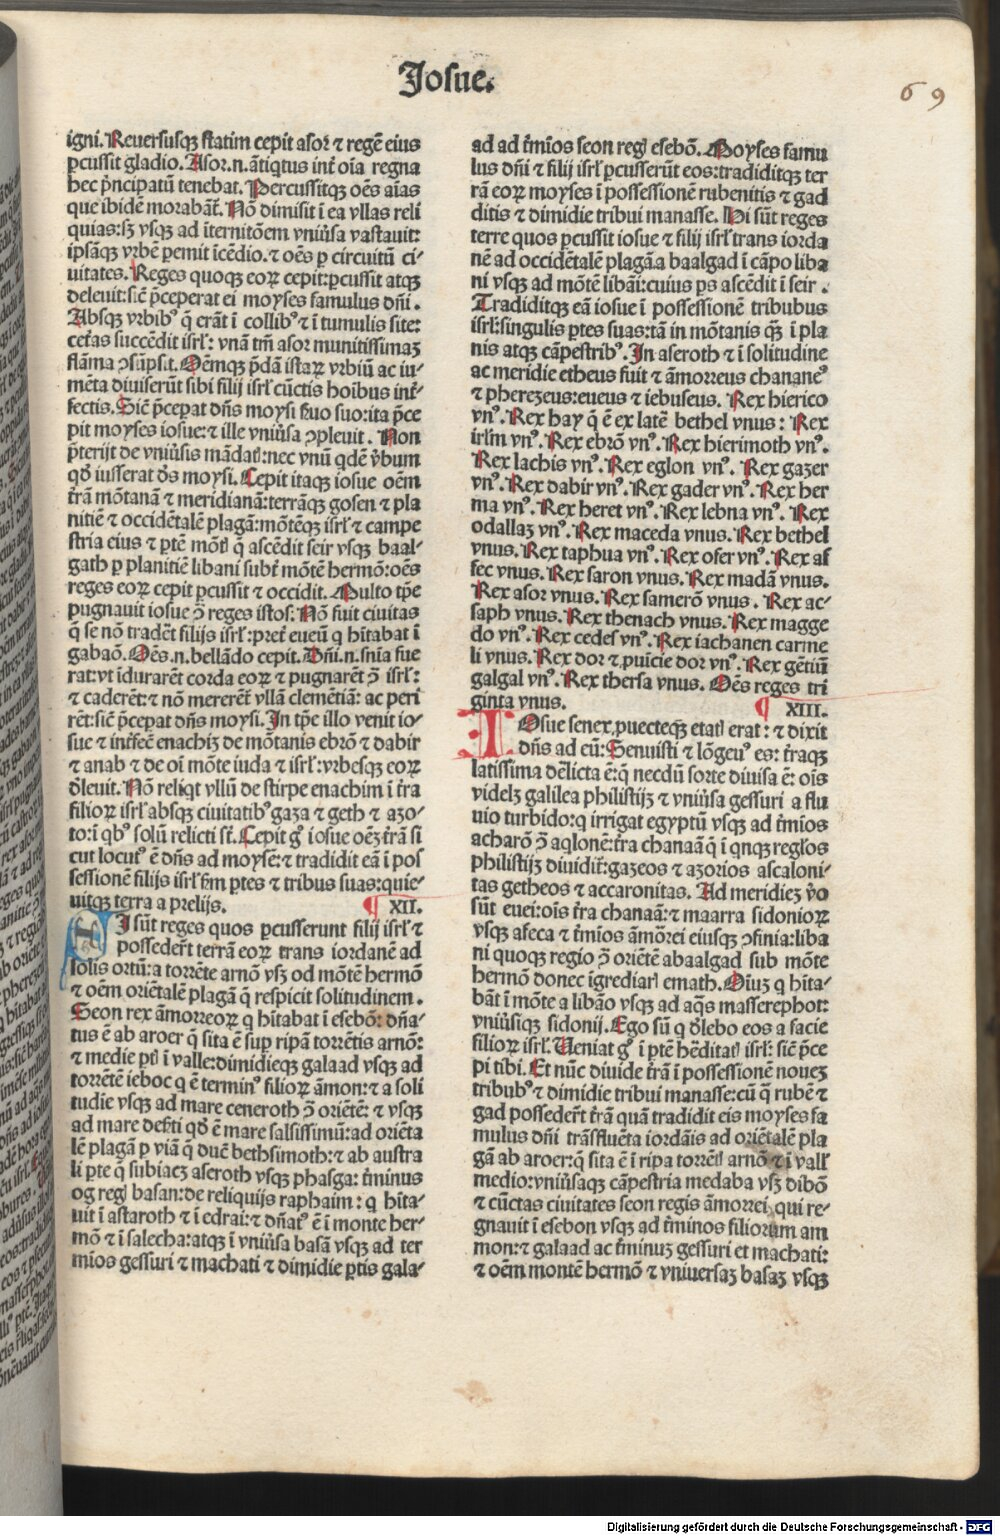 Josue.
69
igni. Reuersusqꝫ statim cepit asor ⁊ regē eius
ꝑcussit gladio. Asor.n. ātiqtus int̄ oīa regna
hec pͥncipatū tenebat. Percussitqꝫ oēs aīas
que ibidē morabāt̄. Nō dimisit ī ea vllas reli
quias: sꝫ vsqꝫ ad īternitōem vniūsa vastauit:
ipsāqꝫ vrbē pemit īcēdio. ⁊ oēs ꝑ circuitū ci-
uitates. Reges quoqꝫ eoꝝ cepit: ꝑcussit atqꝫ
deleuit: sic̄ p̄ceperat ei moyses famulus dn̄i.
Absqꝫ vrbibꝰ q̄ erāt ī collibꝰ ⁊ ī tumulis site:
cet̄as succēdit isrl̄: vnā tm̄ asor munitissimaꝫ
flāma ↄsūpsit. Oēmqꝫ p̄dā istaꝝ vrbiū ac iu-
mēta diuiserūt sibi filij isrl̄ cūctis hoībus int̄-
fectis. Sic̄ p̄cepat dn̄s moysi s̄uo suo: ita p̄ce
pit moyses iosue: ⁊ ille vniūsa ↄpleuit. Non
p̄terijt de vniūsis mādatꝭ: nec vnū qdē v̄bum
qd̄ iusserat dn̄s moysi. Cepit itaqꝫ iosue oēm
t̄rā mōtanā ⁊ meridianā: terrāqꝫ gosen ⁊ pla
nitiē ⁊ occidētalē plagā: mōtēqꝫ isrl̄ ⁊ campe
stria eius ⁊ ꝑtē mōtꝭ q̄ ascēdit seir vsqꝫ baal-
gath ꝑ planitiē libani subt̄ mōtē hermō: oēs
reges eoꝝ cepit ꝑcussit ⁊ occidit. Multo tꝑe
pugnauit iosue ↄ̄ reges istos. Nō fuit ciuitas
q̄ se nō tradēt filijs isrl̄: pret̄ eueū q hītabat ī
gabaō. Oēs.n. bellādo cepit. Dn̄i.n. sn̄ia fue
rat: vt īdurarēt corda eoꝝ ⁊ pugnarēt ↄ̄ isrl̄:
⁊ caderēt: ⁊ nō mererēt vllā clemētiā: ac peri
rēt: sic̄ p̄cepat dn̄s moysi. In tꝑe illo venit io-
sue ⁊ int̄fec̄ enachiꝫ de mōtanis ebrō ⁊ dabir
⁊ anab ⁊ de oī mōte iuda ⁊ isrl̄: vrbesqꝫ eoꝝ
d̄leuit. Nō reliqt vllū de stirpe enachim ī t̄ra
filioꝝ isrl̄ absqꝫ ciuitatibꝰ gaza ⁊ geth ⁊ azo-
to: ī qbꝰ solū relicti st̄. Cepit gͦ iosue oēꝫ t̄rā si
cut locutꝰ ē dn̄s ad moysē: ⁊ tradidit eā ī pos
sessionē filijs isrl̄ sm̄ ꝑtes ⁊ tribus suas: quie-
uitqꝫ terra a prelijs. ¶ XII.
HI sūt reges quos ꝑcusserunt filij isrl̄ ⁊
possedert̄ terrā eoꝝ trans iordanē ad
solis ortū: a torrēte arnō vsꝫ od mōtē hermō
⁊ oēm oriētalē plagā q̄ respicit solitudinem.
Seon rex āmorreoꝝ q hītabat ī esebō: dn̄a-
tus ē ab aroer q̄ sita ē suꝑ ripā torrētis arnō:
⁊ medie ꝑtꝭ ī valle: dimidieqꝫ galaad vsqꝫ ad
torrētē ieboc q ē terminꝰ filioꝝ āmon: ⁊ a soli
tudīe vsqꝫ ad mare ceneroth ↄ̄ oriētē: ⁊ vsqꝫ
ad mare dese̅rti qd̄ ē mare salsissimū: ad oriēta
lē plagā ꝑ viā q̄ ducē bethsimoth: ⁊ ab austra
li ꝑte q̄ subiacꝫ aseroth vsqꝫ phasga: t̄minus
og regꝭ basan: de reliquijs raphaim: q hīta-
uit ī astaroth ⁊ ī edrai: ⁊ dn̄atꝰ ē ī monte her-
mō ⁊ ī salecha: atqꝫ ī vniūsa basā vsqꝫ ad ter
mīos gessuri ⁊ machati ⁊ dimidie ꝑtis gala-
ad ad t̄mīos seon regꝭ esebō. Moyses famu
lus dn̄i ⁊ filij isrl̄ ꝑcusserūt eos: tradiditqꝫ ter
rā eoꝝ moyses ī possessionē rubenitis ⁊ gad
ditis ⁊ dimidie tribui manasse. Hi sūt reges
terre quos ꝑcussit iosue ⁊ filij isrl̄ trans iorda
nē ad occidētalē plagā. a baalgad ī cāpo liba
ni vsqꝫ ad mōtē libāi: cuius ps ascēdit ī seir.
Tradiditqꝫ eā iosue ī possessionē tribubus
isrl̄: singulis ꝑtes suas: tā in mōtanis qꝫ̄ ī pla
nis atqꝫ cāpestribꝰ. In aseroth ⁊ ī solitudine
ac meridie etheus fuit ⁊ āmorreus chananeꝰ
⁊ pherezeus: eueus ⁊ iebuseus. Rex hierico
vnꝰ. Rex hay q̄ ē ex latē bethel vnus: Rex
irlm̄ vnꝰ. Rex ebrō vnꝰ. Rex hierimoth vnꝰ.
Rex lachis vnꝰ. Rex eglon vnꝰ. Rex gazer
vnꝰ. Rex dabir vnꝰ. Rex gader vnꝰ. Rex her
ma vnꝰ. Rex heret vnꝰ. Rex lebna vnꝰ. Rex
odallaꝫ vnꝰ. Rex maceda vnus. Rex bethel
vnus. Rex taphua vnꝰ. Rex ofer vnꝰ. Rex af
fec vnus. Rex saron vnus. Rex madā vnus.
Rex asor vnus. Rex samerō vnus. Rex ac-
saph vnus. Rex thenach vnus. Rex magge
do vnꝰ. Rex cedes vnꝰ. Rex iachanen carme
li vnus. Rex dor ⁊ ꝓuīcie dor vnꝰ. Rex gētiū
galgal vnꝰ. Rex thersa vnus. Oēs reges tri
ginta vnus. ¶ XIII.
IOsue senex ꝓuecteqꝫ etatꝭ erat: ⁊ dixit
dn̄s ad eū: Senuisti ⁊ lōgeuꝰ es: t̄raqꝫ
latissima dēlicta ē: q̄ necdū sorte diuisa ē: oīs
videlꝫ galilea philistijꝫ ⁊ vniūsa gessuri a flu
uio turbido: q irrigat egyptū vsqꝫ ad t̄mīos
acharō ↄ̄ aqlonē: t̄ra chanaā q̄ ī qnqꝫ reglos
philistijꝫ diuidit̄: gazeos ⁊ azorios ascaloni-
tas getheos ⁊ accaronitas. Ad meridieꝫ v̄o
sūt euei: oīs t̄ra chanaā: ⁊ maarra sidonioꝝ
vsqꝫ afeca ⁊ t̄mīos āmōrei eiusqꝫ ↄfinia: liba
ni quoqꝫ regio ↄ̄ oriētē abaalgad sub mōte
hermō donec īgrediarꝭ emath. Oīuꝫ q hīta-
bāt ī mōte a libāo vsqꝫ ad aq̄s masserephot:
vniūsiqꝫ sidonij. Ego sū q d̄lebo eos a facie
filioꝝ isrl̄. Ueniat gͦ ī ꝑtē hēditatꝭ isrl̄: sic̄ p̄ce
pi tibi. Et nūc diuide t̄rā ī possessionē noueꝫ
tribubꝰ ⁊ dimidie tribui manasse: cū q̄ rubē ⁊
gad possedert̄ t̄rā quā tradidit eis moyses fa
mulus dn̄i trāsfluēta iordāis ad oriētalē pla
gā ab aroer: q̄ sita ē ī ripa torrētꝭ arnō ⁊ ī vallꝭ
medio: vniūsaqꝫ cāpestria medaba vsꝫ dibō
⁊ cūctas ciuitates seon regis āmorrei, qui re-
gnauit ī esebon vsqꝫ ad t̄minos filiorum am
mon: ⁊ galaad ac t̄minuꝫ gessuri et machati:
⁊ oēm montē hermō ⁊ vniuersaꝫ basaꝫ vsqꝫ
Digitalisierung gefördert durch die Deutsche Forschungsgemeinschaft - DFG